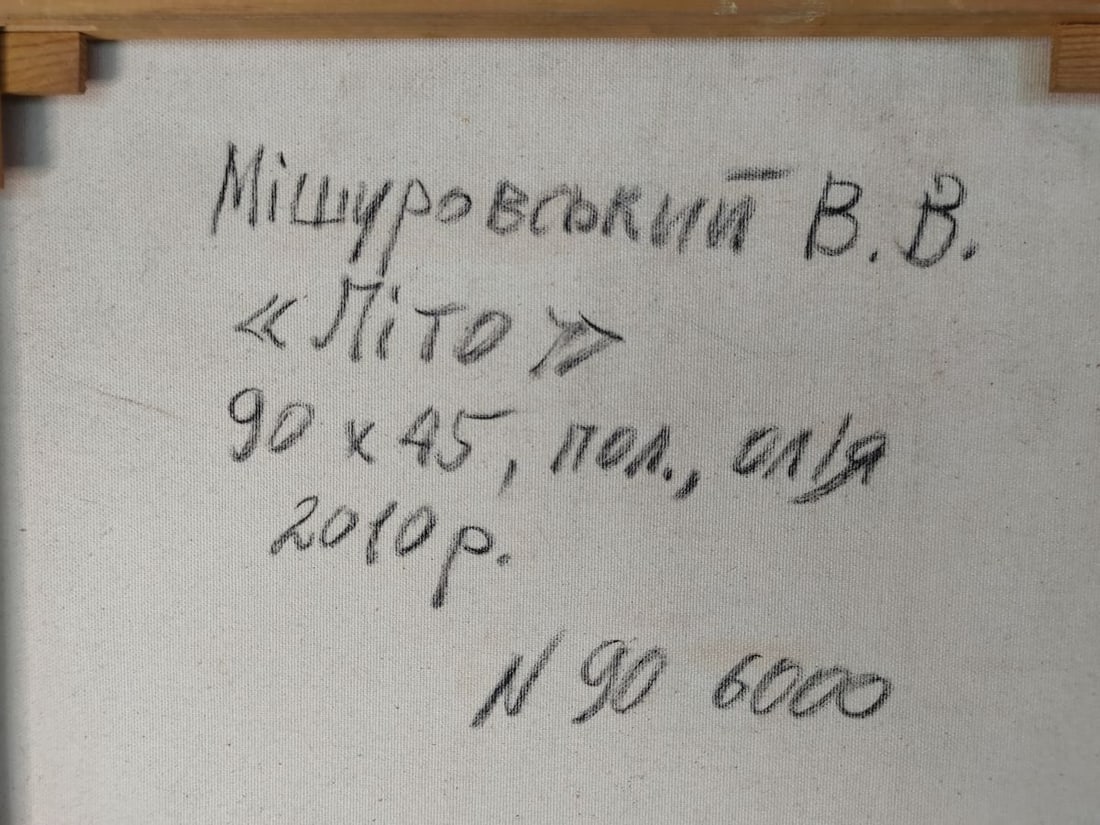 Мішуровський В. В.
«Літо»
90 х 45, пол., олія
2010 р.
N 90 6000